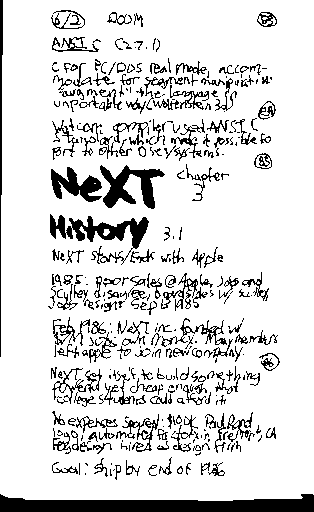 6/2 DOOM 83
ANSI C (2.7.1)
C FOR PC/DOS real mode, accom-
modate for segment manipulation
"augment" the language in
unportable way (Wolfenstein 3D)
Watcom compiler used ANSI C
standard, which made it possible to
port to other OSes/systems.
85
NeXT chapter 3
History 3.1
NeXT starts/Ends with Apple
1985: poor sales @ Apple, Jobs and
Sculley disagree, board sides w/ Sculley
Jobs resigns Sep 1985
Feb 1986: NeXT inc. founded w/
Jobs own money. Many members
left apple to join new company.
86
NeXT set itself to build something
powerful yet cheap enough, that
college students could afford it
No expenses spared: $100K Paul Rand
Logo, automated factory in Fremont, CA
frogdesign hired as design firm
Goal: ship by end of 1986